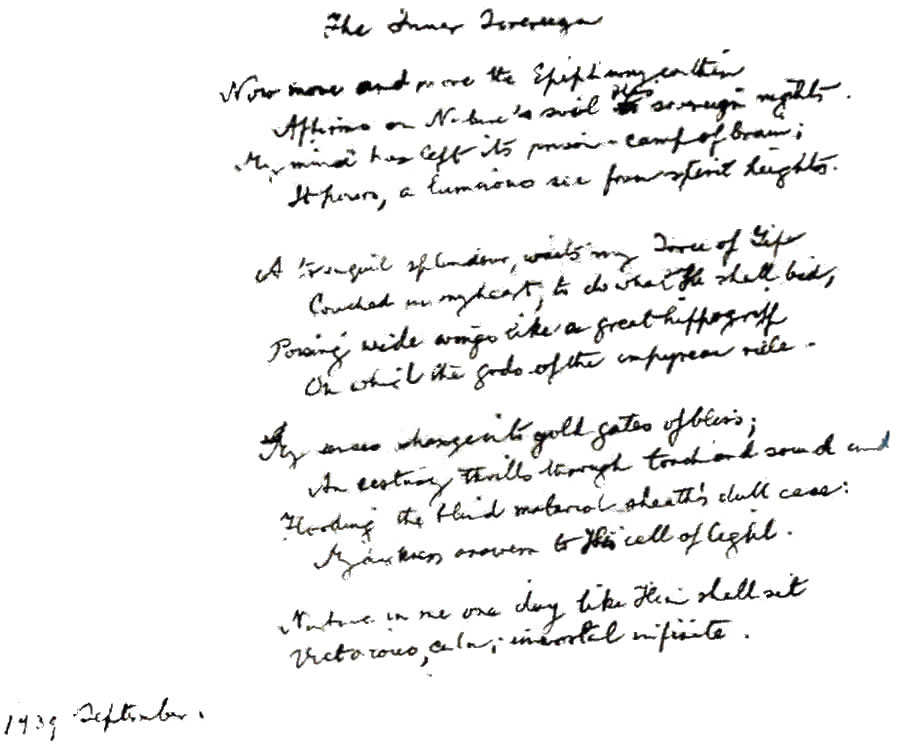 The Inner Sovereign
Now more and more the Epiphany within
Affirms on Nature's soil His sovereign rights.
My mind has left its prison-camp of brain;
It pours, a luminous sea from spirit heights.
A tranquil splendour, waits my Force of Life
Couched in my heart, to do what He shall bid,
Poising wide wings like a great hippogriff
On which the gods of the empyrean ride.
My senses change into gold gates of bliss;
An ecstasy thrills through touch and sound and
Flooding the blind material sheath's dull ease:
My darkness answers to His call of light.
Nature in me one day like Him shall sit
Victorious, calm, immortal, infinite.
1939 September.